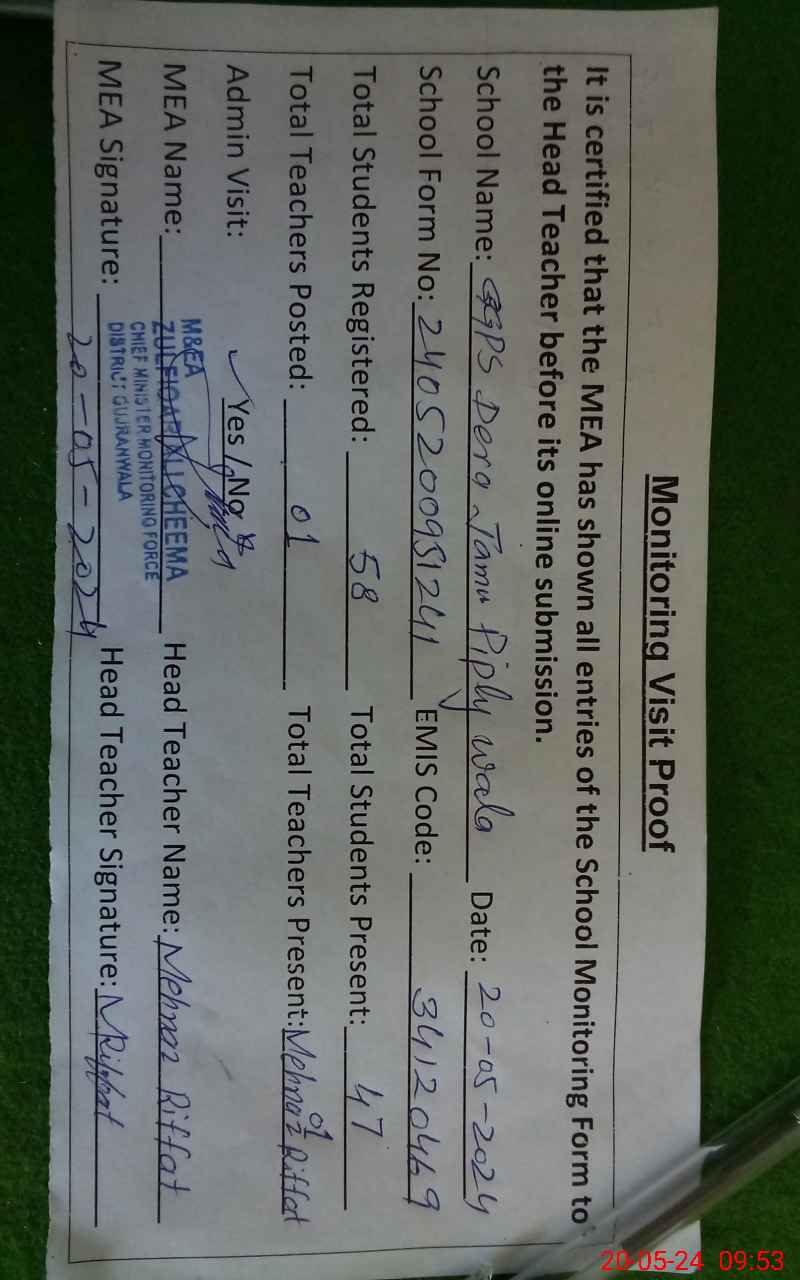 Monitoring Visit Proof
It is certified that the MEA has shown all entries of the School Monitoring Form to
the Head Teacher before its online submission.
School Name: GGPS Dera Jamu Piply wala Date: 20-05-2024
School Form No: 2405200951241 EMIS Code: 34120469
Total Students Registered: 58 Total Students Present: 47
Total Teachers Posted: 01 Total Teachers Present: 01 Mehnaz Riffat
Admin Visit: ✓ Yes / No
M&EA
MEA Name: ZULFIQAR ALI CHEEMA Head Teacher Name: Mehnaz Riffat
CHIEF MINISTER MONITORING FORCE
DISTRICT GUJRANWALA
MEA Signature: 20-05-2024 Head Teacher Signature: MRiffat
20-05-24 09:53